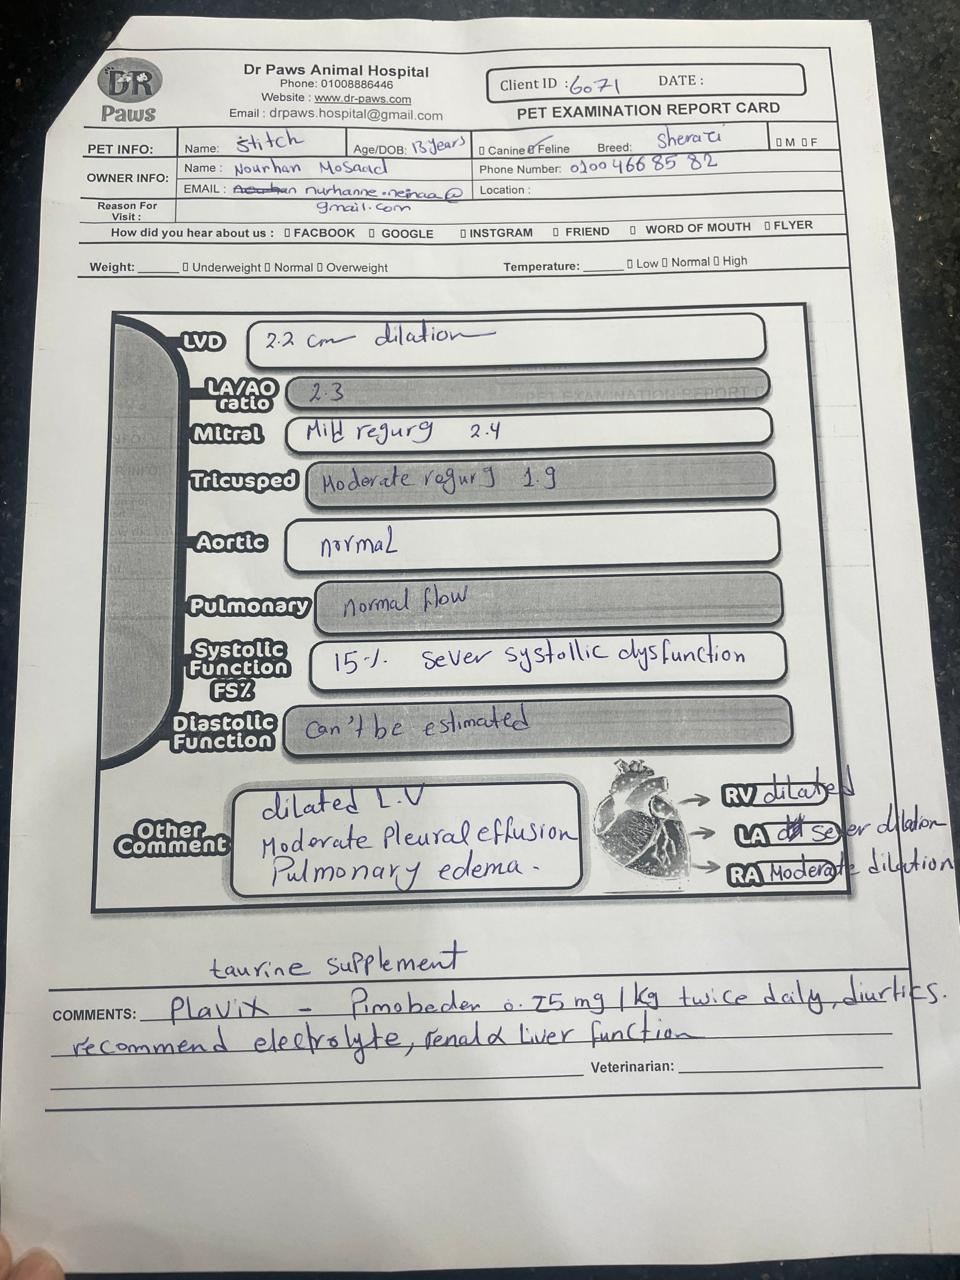 DR
Paws
Dr Paws Animal Hospital
Phone: 01008886446
Website : www.dr-paws.com
Email : drpaws.hospital@gmail.com
Client ID : 6071 DATE :
PET EXAMINATION REPORT CARD
PET INFO: Name: Stitch Age/DOB: 13 years Canine Feline Breed: Sherazi M F
OWNER INFO: Name : Nourhan Mosaad Phone Number: 0100 466 85 82
EMAIL : nurhanne.neinaa@ Location :
gmail.com
Reason For
Visit :
How did you hear about us : FACBOOK GOOGLE INSTGRAM FRIEND WORD OF MOUTH FLYER
Weight: Underweight Normal Overweight Temperature: Low Normal High
LVD 2.2 cm dilation
LA/AO
ratio 2.3
Mitral Mild regurg 2.4
Tricusped Moderate regurg 1.9
Aortic normal
Pulmonary normal flow
Systolic
Function
FS% 15 % sever systollic dysfunction
Diastolic
Function can't be estimated
Other
Comment dilated L.V
Moderate Pleural effusion
Pulmonary edema -
RV dilated
LA sever dilation
RA Moderate dilation
taurine supplement
COMMENTS: Plavix - Pimobeden 0.25 mg / kg twice daily, diurtics.
recommend electrolyte, renal & Liver function
Veterinarian: